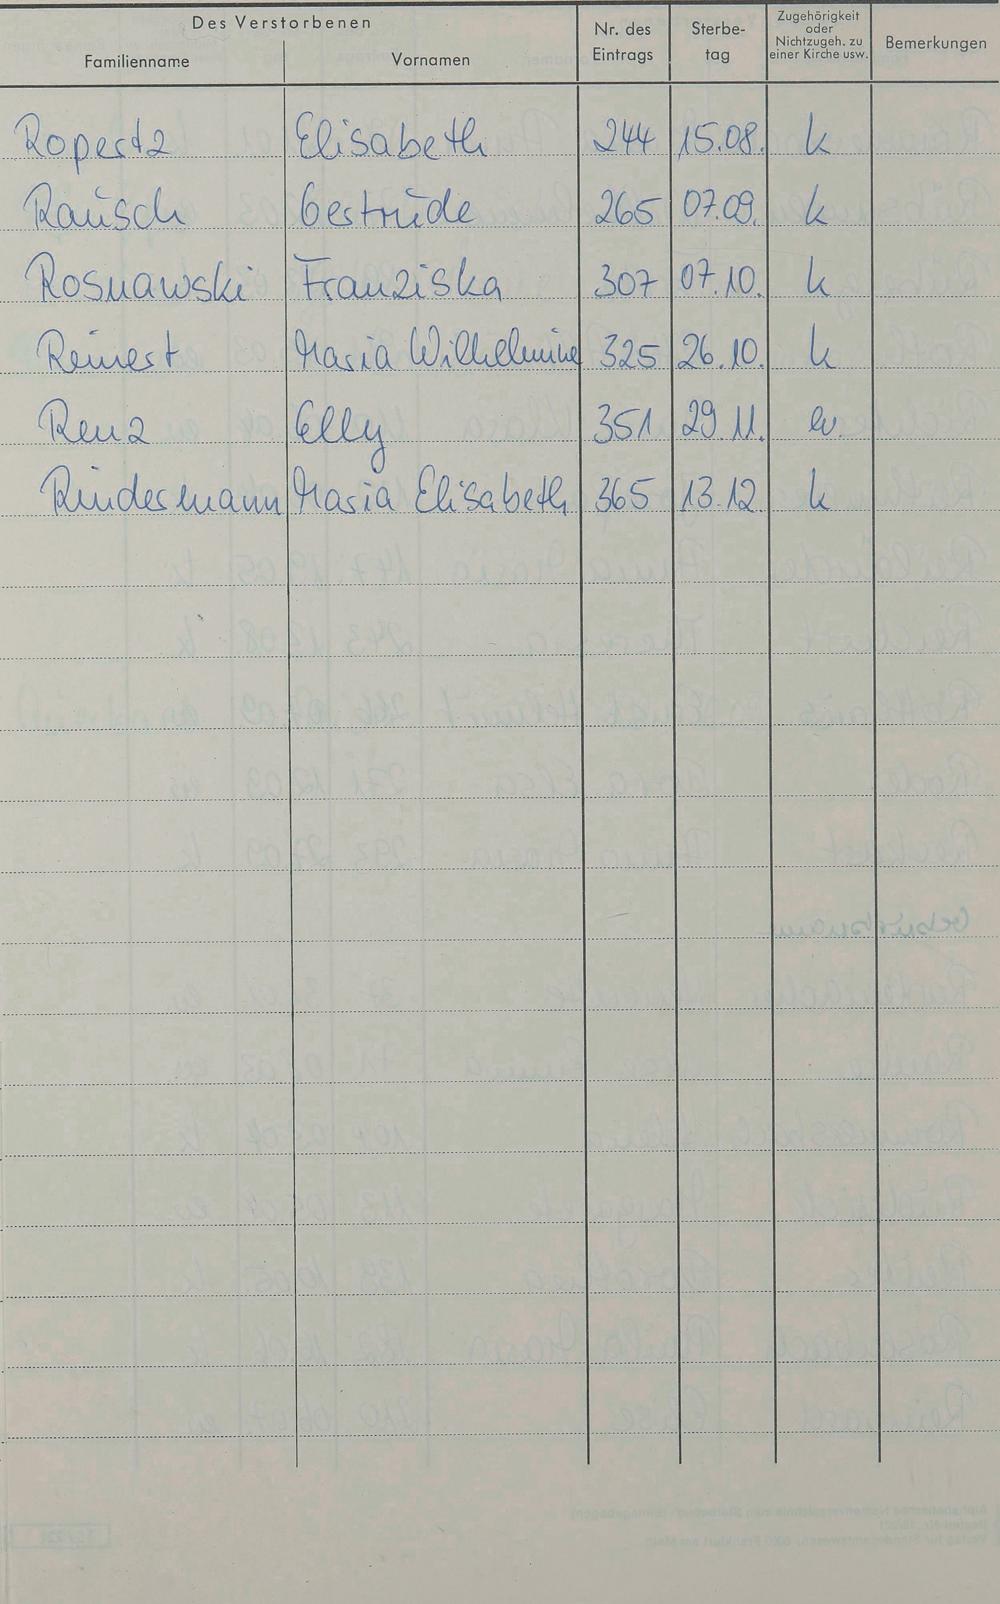 Des Verstorbenen
Familienname Vornamen Nr. des Eintrags Sterbe- tag Zugehörigkeit oder Nichtzugeh. zu einer Kirche usw. Bemerkungen
Ropertz Elisabeth 244 15.08. k
Rausch Gertrude 265 07.09. k
Rosnawski Franziska 307 07.10. k
Reinert Maria Wilhelmine 325 26.10. k
Renz Elly 351 29.11. ev.
Rindermann Maria Elisabeth 365 13.12. k